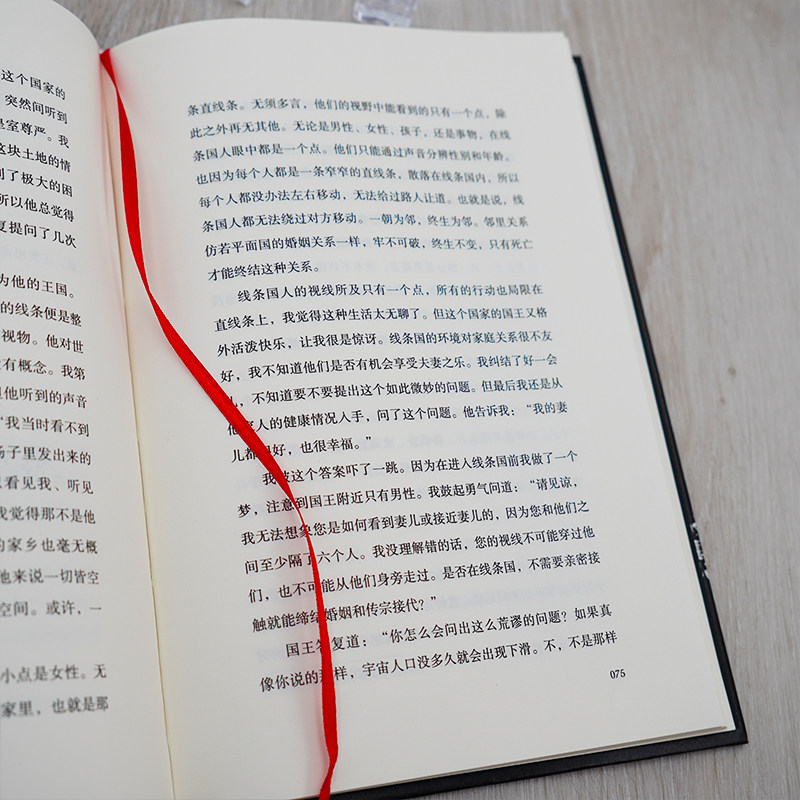 这个国家的
突然间听到
室尊严。我
这块土地的情
到了极大的困
所以他总觉得
复提问了几次
为他的王国。
的线条便是整
视物。他对世
有概念。我第
但他听到的声音
“我当时看不到
场子里发出来的
只看见我、听见
我觉得那不是他
的家乡也毫无概
他来说一切皆空
空间。或许，一
小点是女性。无
家里，也就是那
条直线条。无须多言，他们的视野中能看到的只有一个点，除
此之外再无其他。无论是男性、女性，孩子，还是事物，在线
条国人眼中都是一个点。他们只能通过声音分辨性别和年龄。
也因为每个人都是一条窄窄的直线条，散落在线条国内，所以
每个人都没办法左右移动，无法给过路人让道。也就是说，线
条国人都无法绕过对方移动。一朝为邻，终生为邻。邻里关系
仿若平面国的婚姻关系一样，牢不可破，终生不变，只有死亡
才能终结这种关系。
线条国人的视线所及只有一个点，所有的行动也局限在
直线条上，我觉得这种生活太无聊了。但这个国家的国王又格
外活泼快乐，让我很是惊讶。线条国的环境对家庭关系很不友
好，我不知道他们是否有机会享受夫妻之乐。我纠结了好一会
儿，不知道要不要提出这个如此微妙的问题。但最后我还是从
他家人的健康情况入手，问了这个问题。他告诉我：“我的妻
儿都很好，也很幸福。”
我被这个答案吓了一跳。因为在进入线条国前我做了一个
梦，注意到国王附近只有男性。我鼓起勇气问道：“请见谅，
我无法想象您是如何看到妻儿或接近妻儿的，因为您和他们之
间至少隔了六个人。我没理解错的话，您的视线不可能穿过他
们，也不可能从他们身旁走过。是否在线条国，不需要亲密接
触就能缔结婚姻和传宗接代？”
国王答复道：“你怎么会问出这么荒谬的问题？如果真
像你说的那样，宇宙人口没多久就会出现下滑。不，不是那样
075